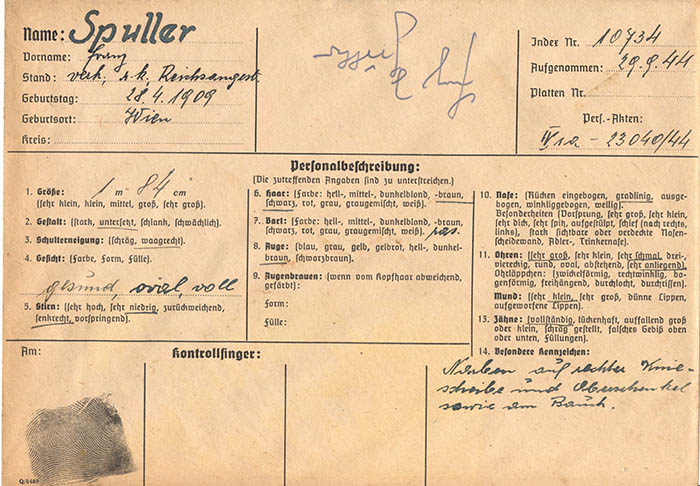 Name: Spuller
Vorname: Franz
Stand: verh., r.k., Reichsangest.
Geburtstag: 28.4.1909
Geburtsort: Wien
Kreis:
Index Nr. 10734
Aufgenommen: 29.9.44
Platten Nr.
Pers.-Akten:
IV1a - 23040/44
Personalbeschreibung:
(Die zutreffenden Angaben sind zu unterstreichen.)
1. Größe: 1 m 84 cm
(sehr klein, klein, mittel, groß, sehr groß).
2. Gestalt: (stark, untersetzt, schlank, schwächlich).
3. Schulterneigung: (schräg, waagrecht).
4. Gesicht: (Farbe, Form, Fülle).
gesund, oval, voll
5. Stirn: (sehr hoch, sehr niedrig, zurückweichend,
senkrecht, vorspringend).
6. Haar: (Farbe: hell-, mittel-, dunkelblond, -braun,
schwarz, rot, grau, graugemischt, weiß).
7. Bart: (Farbe: hell-, mittel-, dunkelblond, -braun,
schwarz, rot, grau, graugemischt, weiß). ras.
8. Auge: (blau, grau, gelb, gelbrot, hell-, dunkel-
braun, schwarzbraun).
9. Augenbrauen: (wenn vom Kopfhaar abweichend,
gefärbt):
Form:
Fülle:
10. Nase: (Rücken eingebogen, gradlinig, ausge-
bogen, winkliggebogen, wellig).
Besonderheiten (Vorsprung, sehr groß, sehr klein,
sehr dick, sehr spitz, aufgestülpt, schief (nach rechts,
links), stark sichtbare oder verdeckte Nasen-
scheidewand, Adler-, Trinkernase).
11. Ohren: (sehr groß, sehr klein, sehr schmal, drei-
viereckig, rund, oval, abstehend, sehr anliegend).
Ohrläppchen: (zwickelförmig, rechtwinklig, bo-
genförmig, freihängend, durchlocht, durchrissen).
Mund: (sehr klein, sehr groß, dünne Lippen,
aufgeworfene Lippen).
13. Zähne: (vollständig, lückenhaft, auffallend groß
oder klein, schräg gestellt, falsches Gebiß oben
oder unten, Füllungen).
14. Besondere Kennzeichen:
Narben auf rechter Knie-
scheibe und Oberschenkel
sowie am Bauch.
Am:
Kontrollfinger: